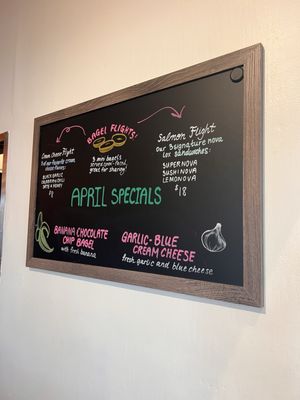 BAGEL FLIGHTS!
3 mini bagels
served open-faced,
great for sharing!
Cream Cheese Flight
3 of our favorite cream
cheese flavors
BLACK GARLIC
CALABRIAN CHILI
DATE & HONEY
Salmon Flight
our 3 signature nova
lox sandwiches
SUPERNOVA
SUSHI NOVA
LEMONOVA
$18
APRIL SPECIALS
BANANA CHOCOLATE
CHIP BAGEL
with fresh banana
GARLIC-BLUE
CREAM CHEESE
fresh garlic and blue cheese